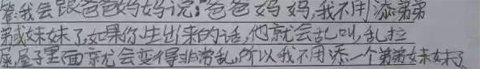 答:我会跟爸爸妈妈说:"爸爸妈妈,我不用添弟弟
或妹妹了,如果你生出来的话,他就会乱叫,乱拉
屎,屋子里面就会变得非常乱,所以我不用添一个弟弟妹妹了